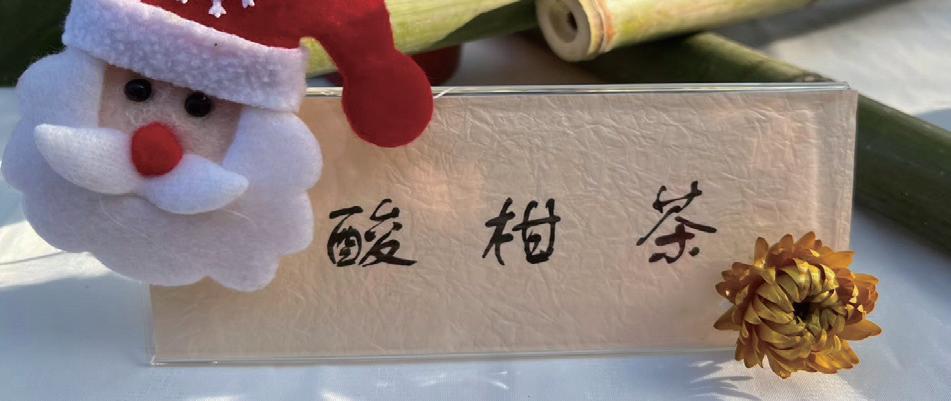 酸柑茶